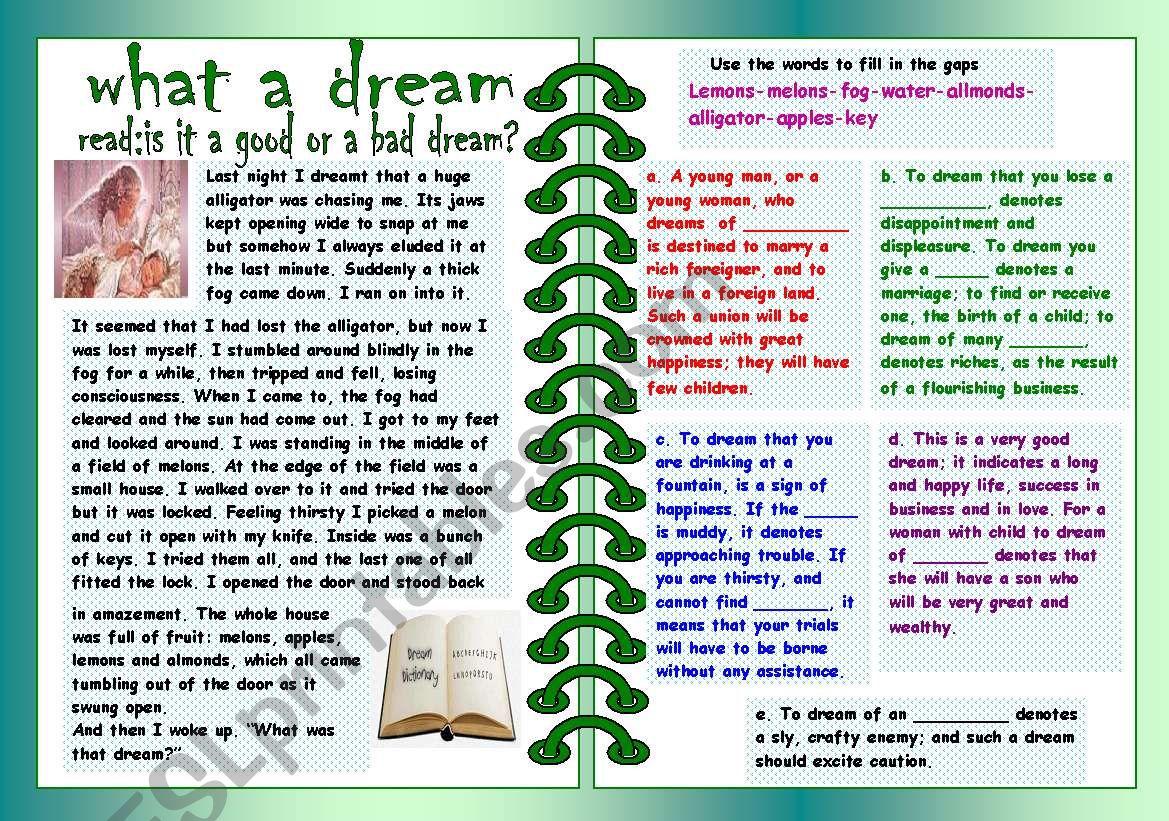 what a dream
read:is it a good or a bad dream?
Last night I dreamt that a huge
alligator was chasing me. Its jaws
kept opening wide to snap at me
but somehow I always eluded it at
the last minute. Suddenly a thick
fog came down. I ran on into it.
It seemed that I had lost the alligator, but now I
was lost myself. I stumbled around blindly in the
fog for a while, then tripped and fell, losing
consciousness. When I came to, the fog had
cleared and the sun had come out. I got to my feet
and looked around. I was standing in the middle of
a field of melons. At the edge of the field was a
small house. I walked over to it and tried the door
but it was locked. Feeling thirsty I picked a melon
and cut it open with my knife. Inside was a bunch
of keys. I tried them all, and the last one of all
fitted the lock. I opened the door and stood back
in amazement. The whole house
was full of fruit: melons, apples,
lemons and almonds, which all came
tumbling out of the door as it
swung open.
And then I woke up. “What was
that dream?”
Dream
Dictionary
ABCDEFGHIJK
LMNOPQRSTU
Use the words to fill in the gaps
Lemons-melons-fog-water-allmonds-
alligator-apples-key
a. A young man, or a
young woman, who
dreams of __________
is destined to marry a
rich foreigner, and to
live in a foreign land.
Such a union will be
crowned with great
happiness; they will have
few children.
b. To dream that you lose a
__________, denotes
disappointment and
displeasure. To dream you
give a _____ denotes a
marriage; to find or receive
one, the birth of a child; to
dream of many _______,
denotes riches, as the result
of a flourishing business.
c. To dream that you
are drinking at a
fountain, is a sign of
happiness. If the _____
is muddy, it denotes
approaching trouble. If
you are thirsty, and
cannot find _______, it
means that your trials
will have to be borne
without any assistance.
d. This is a very good
dream; it indicates a long
and happy life, success in
business and in love. For a
woman with child to dream
of _______ denotes that
she will have a son who
will be very great and
wealthy.
e. To dream of an _________ denotes
a sly, crafty enemy; and such a dream
should excite caution.
ESLprintables.com